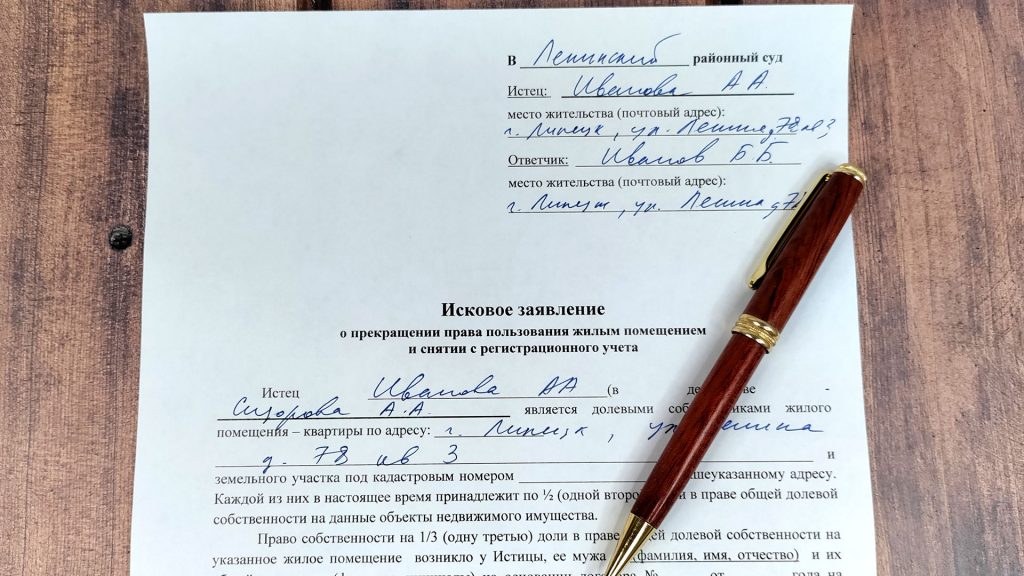 В Ленинский районный суд
Истец: Иванова А А.
место жительства (почтовый адрес):
г. Липецк, ул. Ленина д 78 кв 3
Ответчик: Иванов Б.Б.
место жительства (почтовый адрес):
г. Липецк, ул. Ленина д 78
Исковое заявление
о прекращении права пользования жилым помещением
и снятии с регистрационного учета
Истец Иванова АА (в де ве -
Сидорова А.А. является долевыми соб иками жилого
помещения – квартиры по адресу: г. Липецк, ул енина
д. 78 кв 3 и
земельного участка под кадастровым номером шеуказанному адресу.
Каждой из них в настоящее время принадлежит по ½ (одной второ и в праве общей долевой
собственности на данные объекты недвижимого имущества.
Право собственности на 1/3 (одну третью) доли в праве ей долевой собственности на
указанное жилое помещение возникло у Истицы, ее мужа (фамилия, имя, отчество) и их
на основании договора № от года на